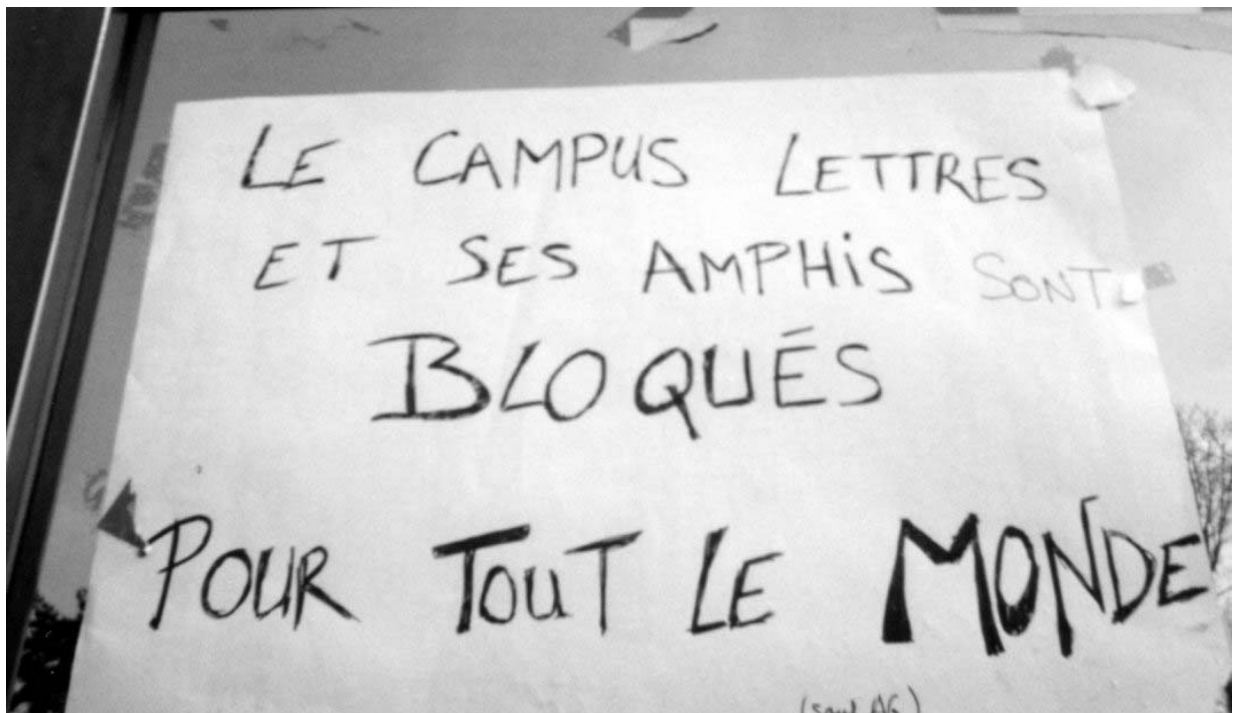 LE CAMPUS LETTRES
ET SES AMPHIS SONT
BLOQUÉS
POUR TOUT LE MONDE
(sauf AG)